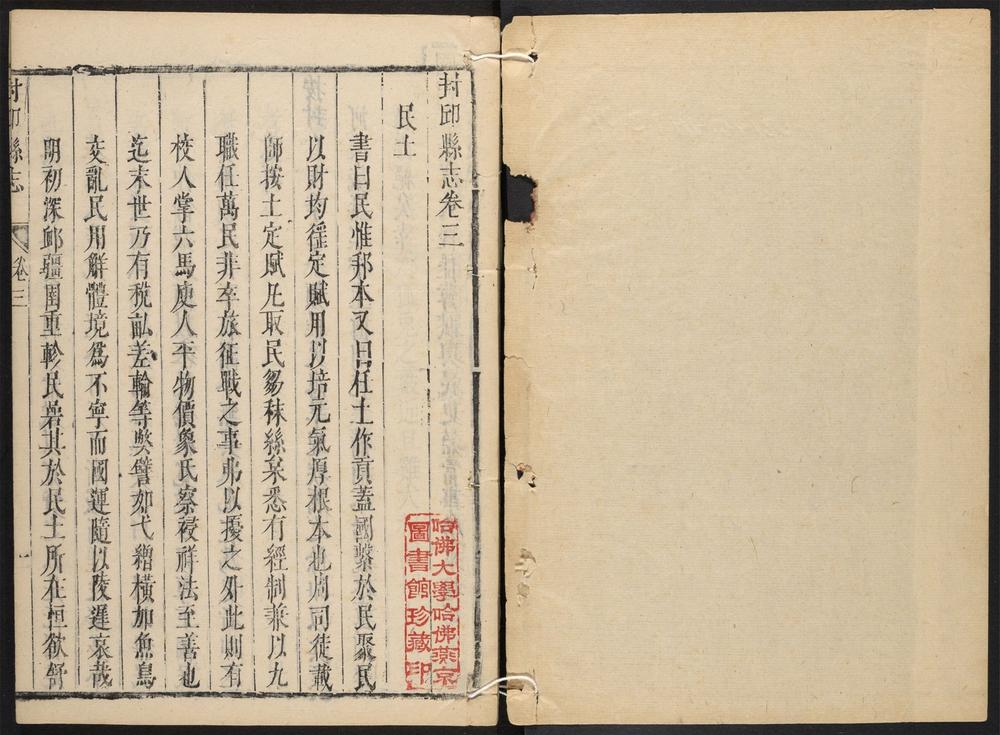 封邱縣志卷三
民土
書曰民惟邦本又曰任土作貢蓋國繫於民聚民
以財均徭定賦用以培元氣厚根本也周司徒載
師按土定賦凡取民芻秣絲枲悉有經制兼以九
職任萬民非卒旅征戰之事弗以擾之外此則有
校人掌六馬庾人平物價象氏察祲祥法至善也
迄末世乃有稅畝差輪等弊譬如弋繒橫加魚鳥
交亂民用解體境為不寧而國運隨以陵遲哀哉
明初深邱疆圉重軫民碁其於民土所在恒欲舒
封邱縣志
卷三
一
哈佛大學哈佛燕京
圖書館珍藏印